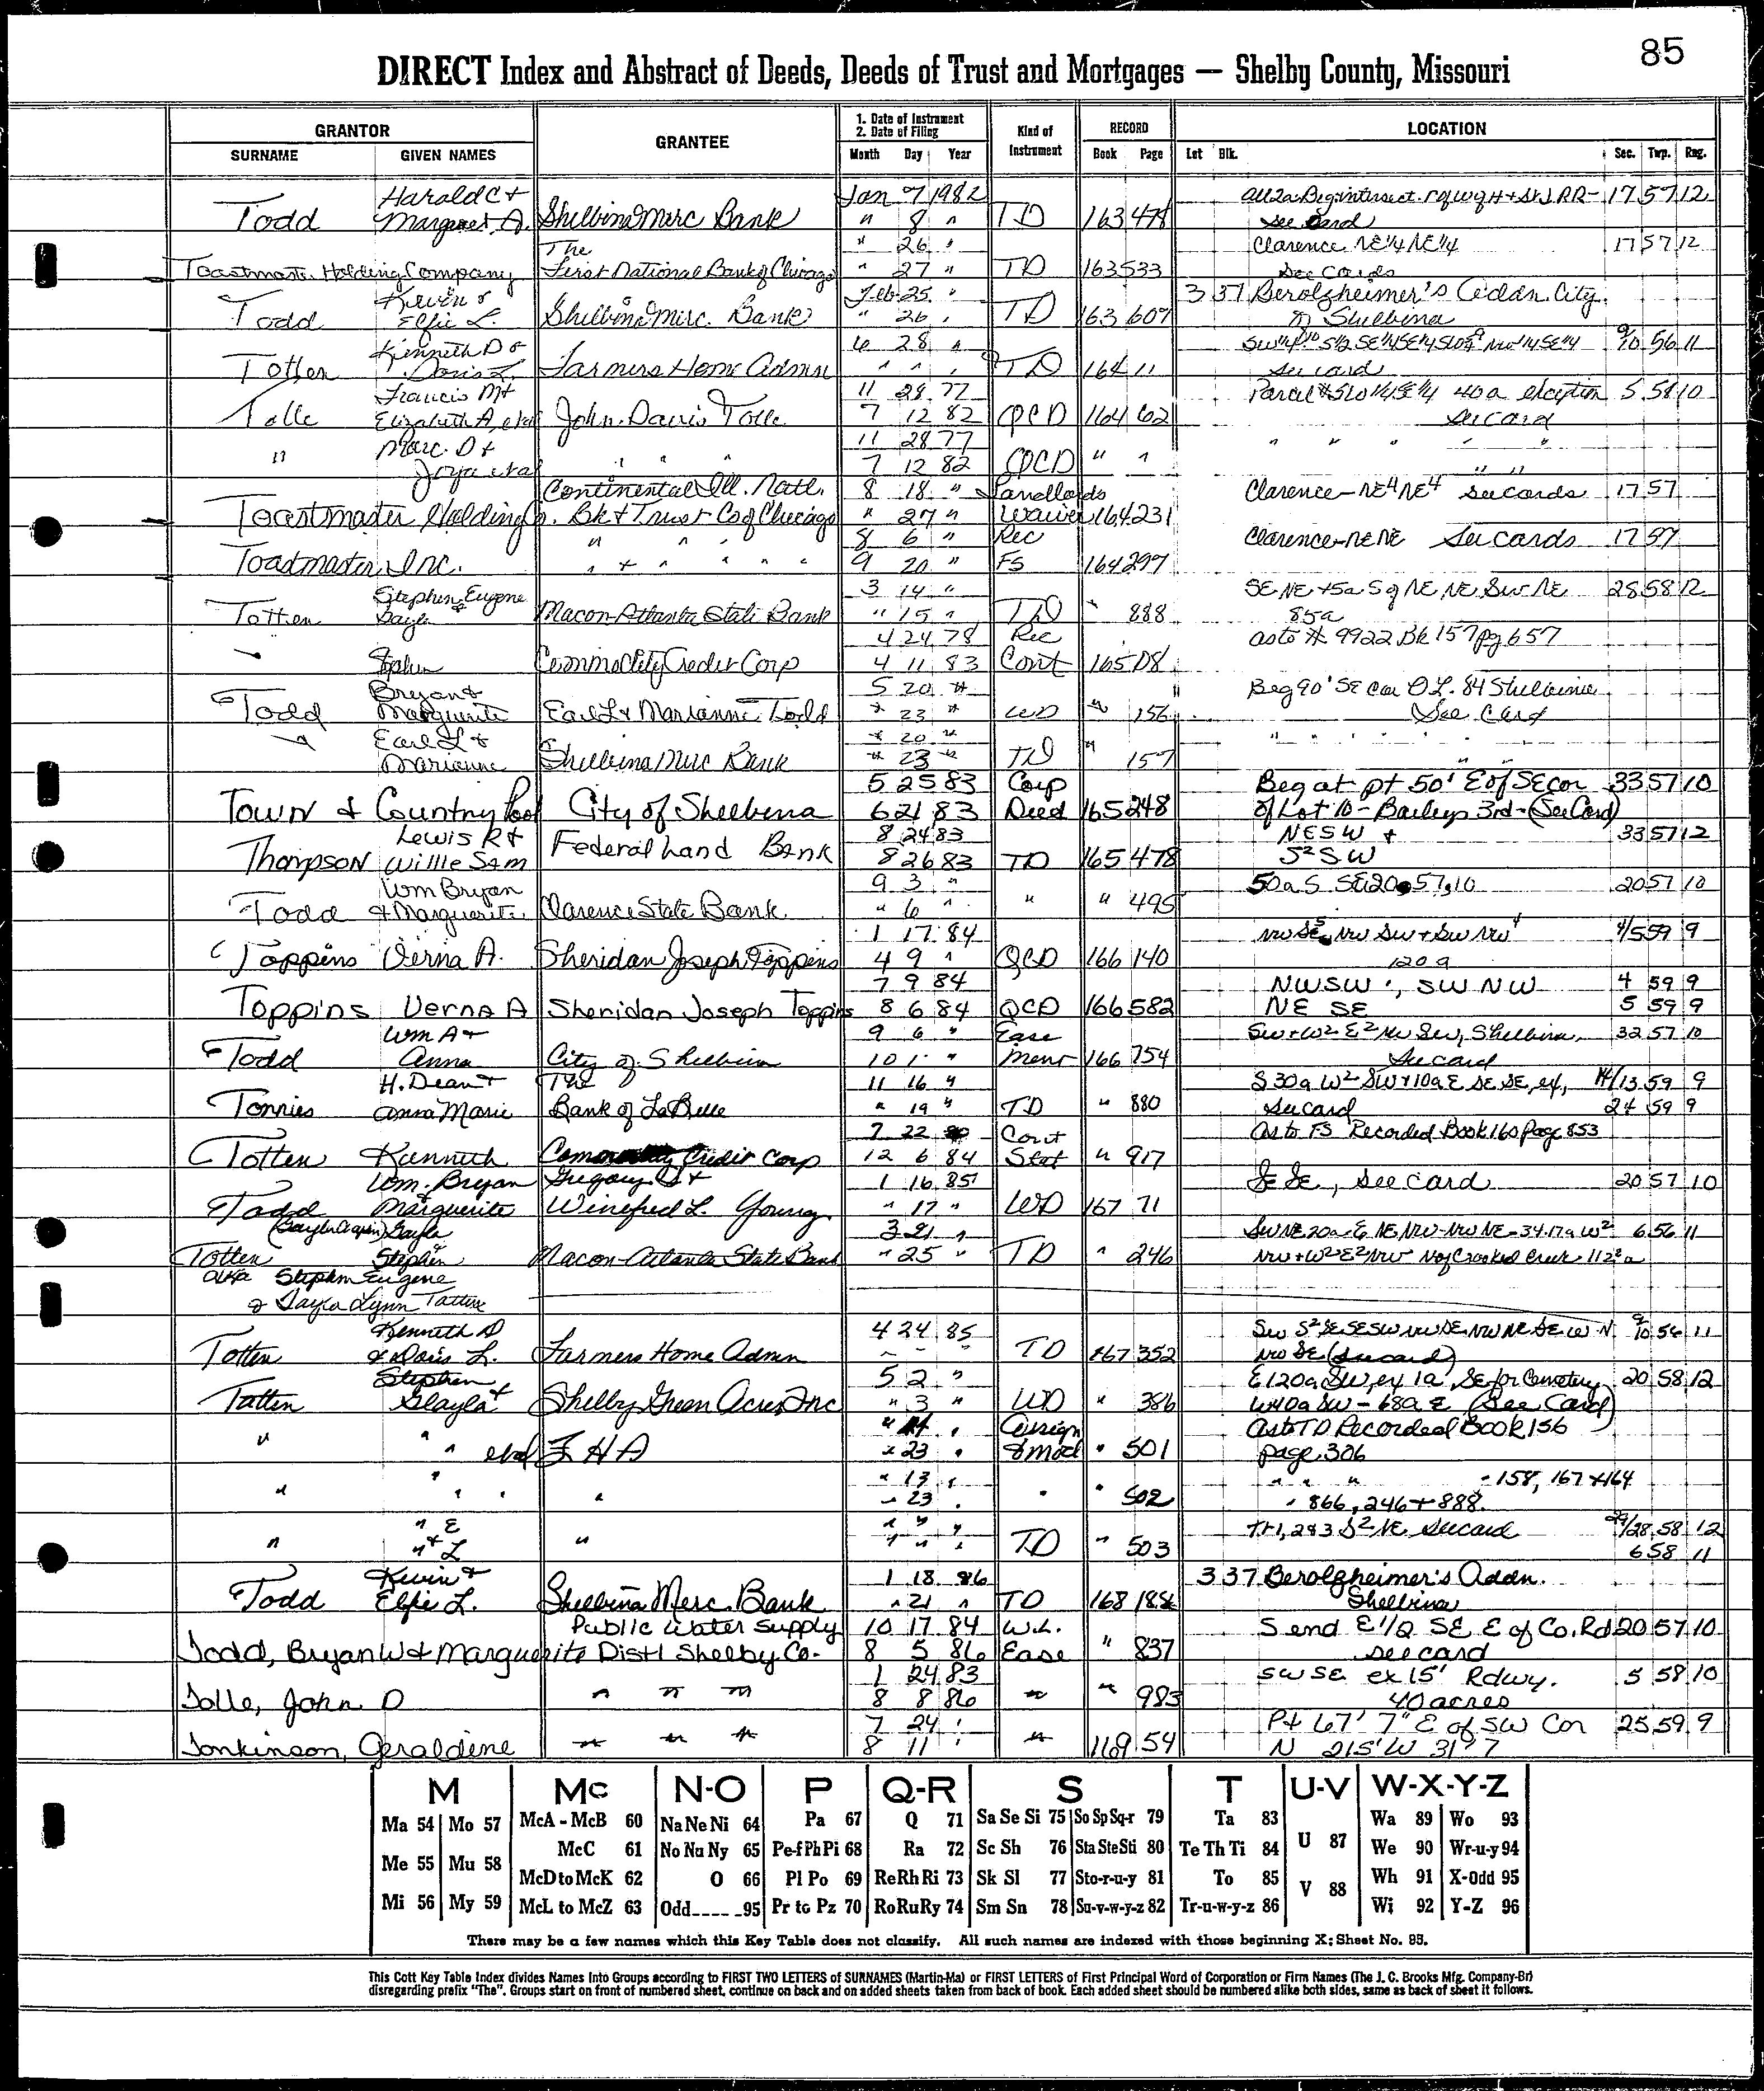 85
DIRECT Index and Abstract of Deeds, Deeds of Trust and Mortgages — Shelby County, Missouri
GRANTOR GRANTEE 1. Date of Instrument 2. Date of Filing Kind of Instrument RECORD LOCATION
SURNAME GIVEN NAMES Month Day Year Book Page Lot Blk. Sec. Twp. Rng.
Harald C + Jan 7 1982 17 57 12
Todd Margaret A. Shelbina Merc Bank " 8 " TD 163 478 See Card
The " 26 " Clarence NE 1/4 NE 1/4 17 57 12
Toastmaster Holding Company First National Bank of Chicago " 27 " TD 163 533 See Cards
Kevin & Feb 25 " 3 37 Berolzheimer's Addn. City
Todd Elfie L. Shelbina Merc. Bank " 26 " TD 163 607 of Shelbina
Kenneth D & 6 28 " 9/10 56 11
Totten Doris L. Farmers Home Admn " " " TD 164 11 See card
Francis M + 11 28 77 40 a exception 5 58 10
Tolle Elizabeth A, etal John Davis Tolle 7 12 82 QCD 164 62 See card
Marc. D + 11 28 77 " " " " "
" Joya etal " " " 7 12 82 QCD " " " "
Continental Ill. Natl. 8 18 " Landlords Clarence – NE4 NE4 See cards 17 57
Toastmaster Holding Co. Bk + Trust Co of Chicago " 27 " Waiver 164 231
" " " 8 6 " Rec Clarence – NE NE See cards 17 57
Toastmaster, Inc. " + " " " " 9 20 " FS 164 297
Stephen Eugene 3 14 " SE NE + 5a S of NE NE SW NE 28 58 12
Totten & Gayla Macon-Atlanta State Bank " 15 " TD " 888 85a
4 24 78 Rec as to # 9922 Bk 157 pg 657
" Stephen Commodity Credit Corp 4 11 83 Cont 165 D8
Bryan & 5 20 " Beg 90' SE cor O.L. 84 Shelbina
Todd Marguerite Earl L + Marianne Todd " 23 " WD " 156 See Card
" Earl L + " 20 " " " " "
Marianne Shelbina Merc Bank " 23 " TD " 157 " "
5 25 83 Corp Beg at pt 50' E of SE cor 33 57 10
Town & Country Pool City of Shelbina 6 21 83 Deed 165 248 of Lot 10 – Baileys 3rd – (See Card)
Lewis R + 8 24 83 NE SW + 33 57 12
Thompson Willie Sam Federal Land Bank 8 26 83 TD 165 478 S2 SW
Wm Bryan 9 3 " 50a S SE 20 57, 10 20 57 10
Todd & Marguerite Clarence State Bank. " 6 " " " 495
1 17 84 NW SE, NW SW + SW NW 4/5 59 9
Toppins Verna A. Sheridan Joseph Toppins 4 9 " QCD 166 140 120 a
7 9 84 NW SW, SW NW 4 59 9
Toppins Verna A Sheridan Joseph Toppins 8 6 84 QCD 166 582 NE SE 5 59 9
Wm A + 9 6 " Ease SW + W2 E2 NW SW, Shelbina 32 57 10
Todd Anna City of Shelbina 10 1 " ment 166 754 See card
H. Dean + The 11 16 " S 30a W2 SW + 10a E SE SE, ex, 14/13 59 9
Tonnies Anna Marie Bank of LaBelle " 19 " TD " 880 See card 24 59 9
7 22 80 Cont As to FS Recorded Book 160 page 853
Totten Kenneth Credit Corp 12 6 84 Stat " 917
Wm. Bryan Gregory S + 1 16 85 SE SE, see card 20 57 10
Todd & Marguerite Winifred L. Young " 17 " WD 167 71
Gayla 3 21 " SW NE 20a E NE NW – NW NE – 34.17a W2 6 56 11
Totten & Stephen Macon-Atlanta State Bank " 25 " TD " 246 NW + W2 E2 NW N of Crooked Creek 112 a
aka Stephen Eugene
& Gayla Lynn Totten
Kenneth D 4 24 85 9/10 56 11
Totten & Doris L. Farmers Home Admn " " " TD 167 352 NW SE (See card)
Stephen 5 2 " E 120a SW, ex 1a SE for Cemetery 20 58 12
Totten Glayla + Shelby Green Acres Inc " 3 " WD " 386 W 40a SW – 68a E (See Card)
" " " 14 " Assign As to TD Recorded Book 156
" etal F H A " 23 " & Mod " 501 page 306
" " " 13 " " " " – 158, 167 + 164
" " " " 23 " " " 502 " 866, 246 + 888.
" E " " " Tr 1, 2 & 3 S2 NE See card 29/28 58 12
" " + L " " " " TD " 503 6 58 11
Kevin + 1 18 86 3 37 Berolzheimer's Addn.
Todd Elfie L. Shelbina Merc. Bank " 21 " TD 168 188 Shelbina
Public Water Supply 10 17 84 W.L. S end E 1/2 SE E of Co. Rd 20 57 10
Todd, Bryan W & Marguerite Dist 1 Shelby Co. 8 5 86 Ease " 837 see card
1 24 83 SW SE ex 15' Rdwy. 5 58 10
Tolle, John D " " " 8 8 86 " " 983 40 acres
7 24 " Pt 67' 7" E of SW Cor 25 59 9
Tonkinson, Geraldine " " " 8 11 " " 169 54 N 215' W 31' 7
M Mc N-O P Q-R S T U-V W-X-Y-Z
Ma 54 Mo 57 McA - McB 60 Na Ne Ni 64 Pa 67 Q 71 Sa Se Si 75 So Sp Sq-r 79 Ta 83 U 87 Wa 89 Wo 93
McC 61 No Nu Ny 65 Pe-f Ph Pi 68 Ra 72 Sc Sh 76 Sta Ste Sti 80 Te Th Ti 84 We 90 Wr-u-y 94
Me 55 Mu 58 McD to McK 62 O 66 Pl Po 69 Re Rh Ri 73 Sk Sl 77 Sto-r-u-y 81 To 85 V 88 Wh 91 X-Odd 95
Mi 56 My 59 McL to McZ 63 Odd____95 Pr to Pz 70 Ro Ru Ry 74 Sm Sn 78 Su-v-w-y-z 82 Tr-u-w-y-z 86 Wi 92 Y-Z 96
There may be a few names which this Key Table does not classify. All such names are indexed with those beginning X; Sheet No. 95.
This Cott Key Table Index divides Names Into Groups according to FIRST TWO LETTERS of SURNAMES (Martin-Ma) or FIRST LETTERS of First Principal Word of Corporation or Firm Names (The J. C. Brooks Mfg. Company-Br)
disregarding prefix "The". Groups start on front of numbered sheet, continue on back and on added sheets taken from back of book. Each added sheet should be numbered alike both sides, same as back of sheet it follows.